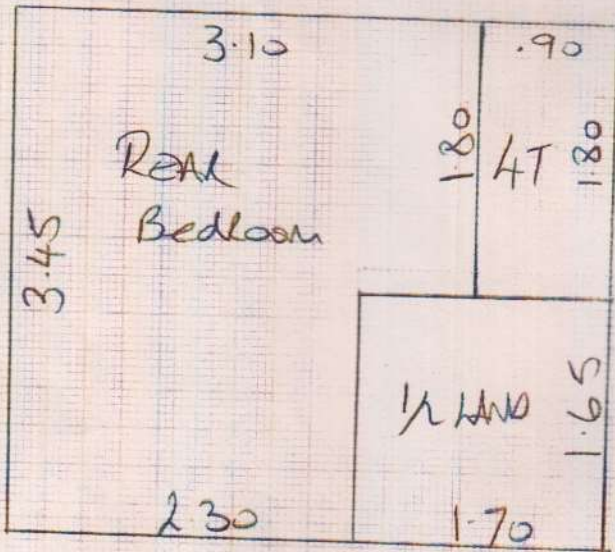 3.10
.90
Rear
Bedroom
1.80
4T
1.80
3.45
1/2 LAND
1.65
2.30
1.70